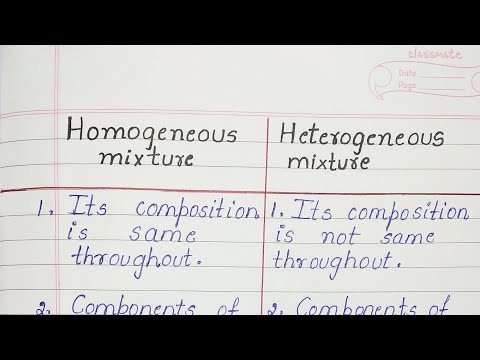 classmate
Date
Page
Homogeneous
mixture
Heterogeneous
mixture
1. Its composition
is same
throughout.
1. Its composition
is not same
throughout.
2. Components of
2. Components of